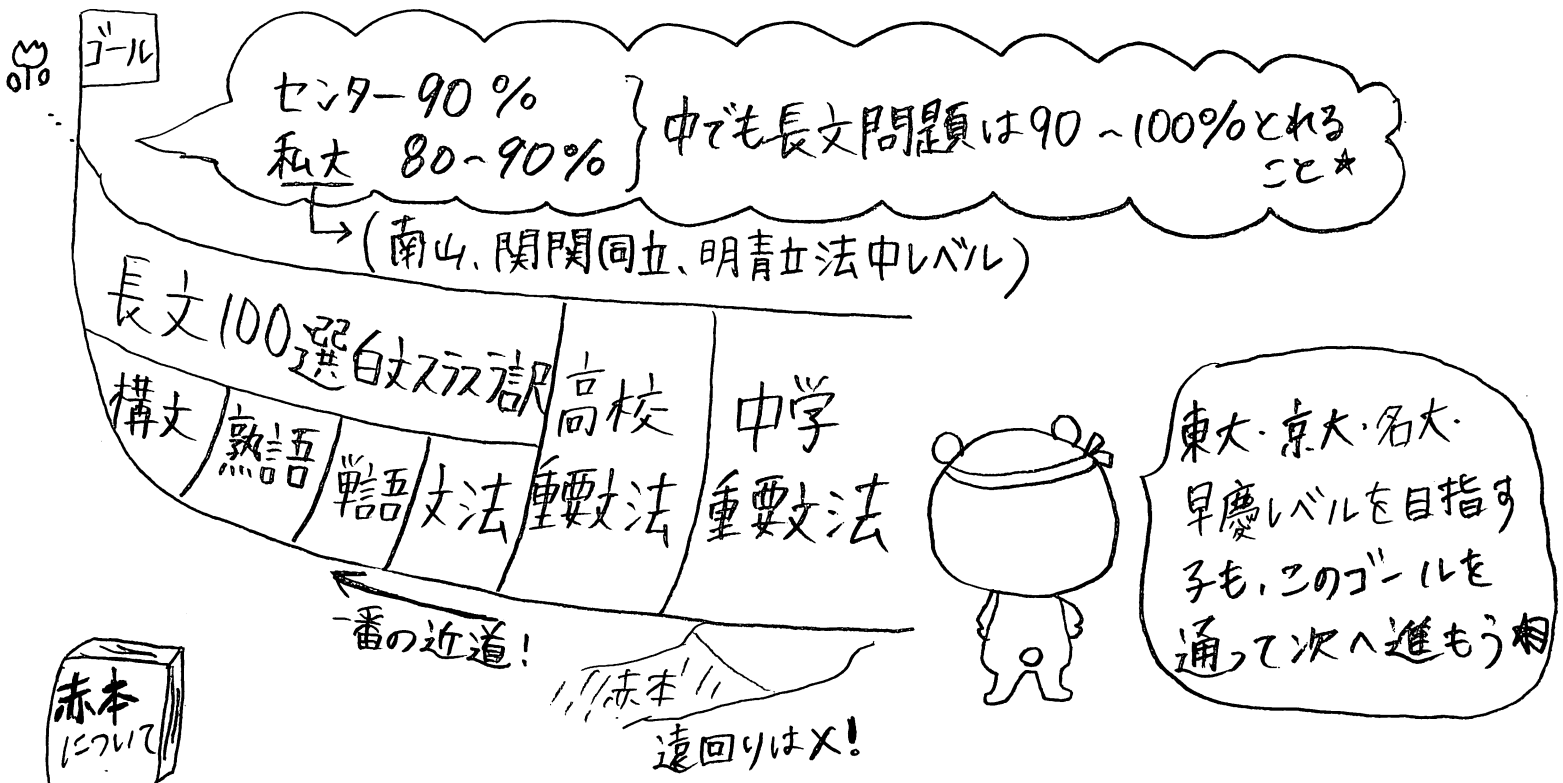 ゴール
センター 90%
私大 80~90%
中でも長文問題は90~100%とれる
こと☆
(南山、関関同立、明青立法中レベル)
長文100選白文スラスラ訳
構文
熟語
単語
文法
高校
重要文法
中学
重要文法
一番の近道!
赤本
遠回りは×!
東大・京大・名大・
早慶レベルを目指す
子も、このゴールを
通って次へ進もう
赤本
について